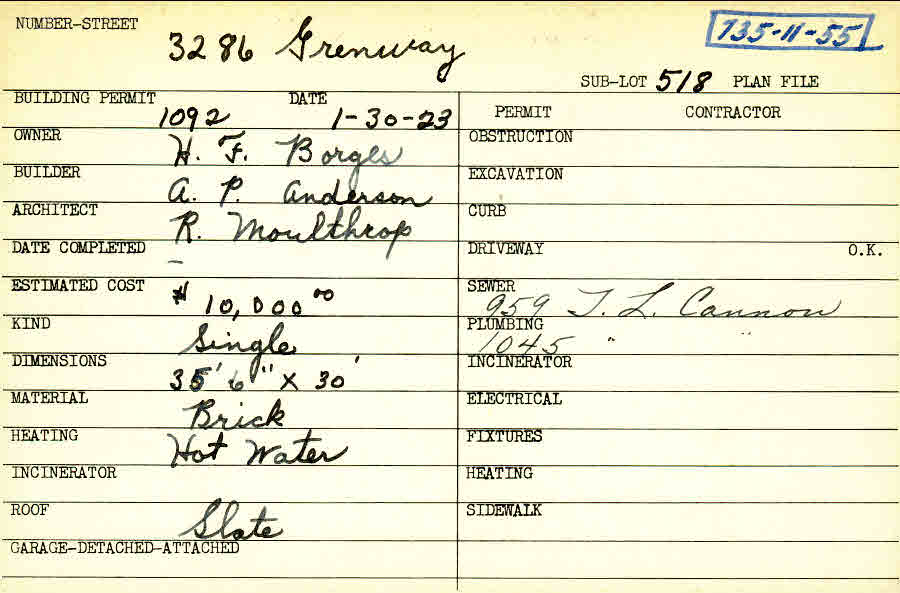 NUMBER-STREET
3286 Grenway
735-11-55
SUB-LOT 518 PLAN FILE
BUILDING PERMIT DATE
1092 1-30-23
OWNER
H. F. Borges
BUILDER
A. P. Anderson
ARCHITECT
R. Moulthrop
DATE COMPLETED
-
ESTIMATED COST
$10,000.00
KIND
Single
DIMENSIONS
35' 6" X 30'
MATERIAL
Brick
HEATING
Hot Water
INCINERATOR
ROOF
Slate
GARAGE-DETACHED-ATTACHED
PERMIT CONTRACTOR
OBSTRUCTION
EXCAVATION
CURB
DRIVEWAY O.K.
SEWER
959 T. L. Cannon
PLUMBING
1045 " "
INCINERATOR
ELECTRICAL
FIXTURES
HEATING
SIDEWALK